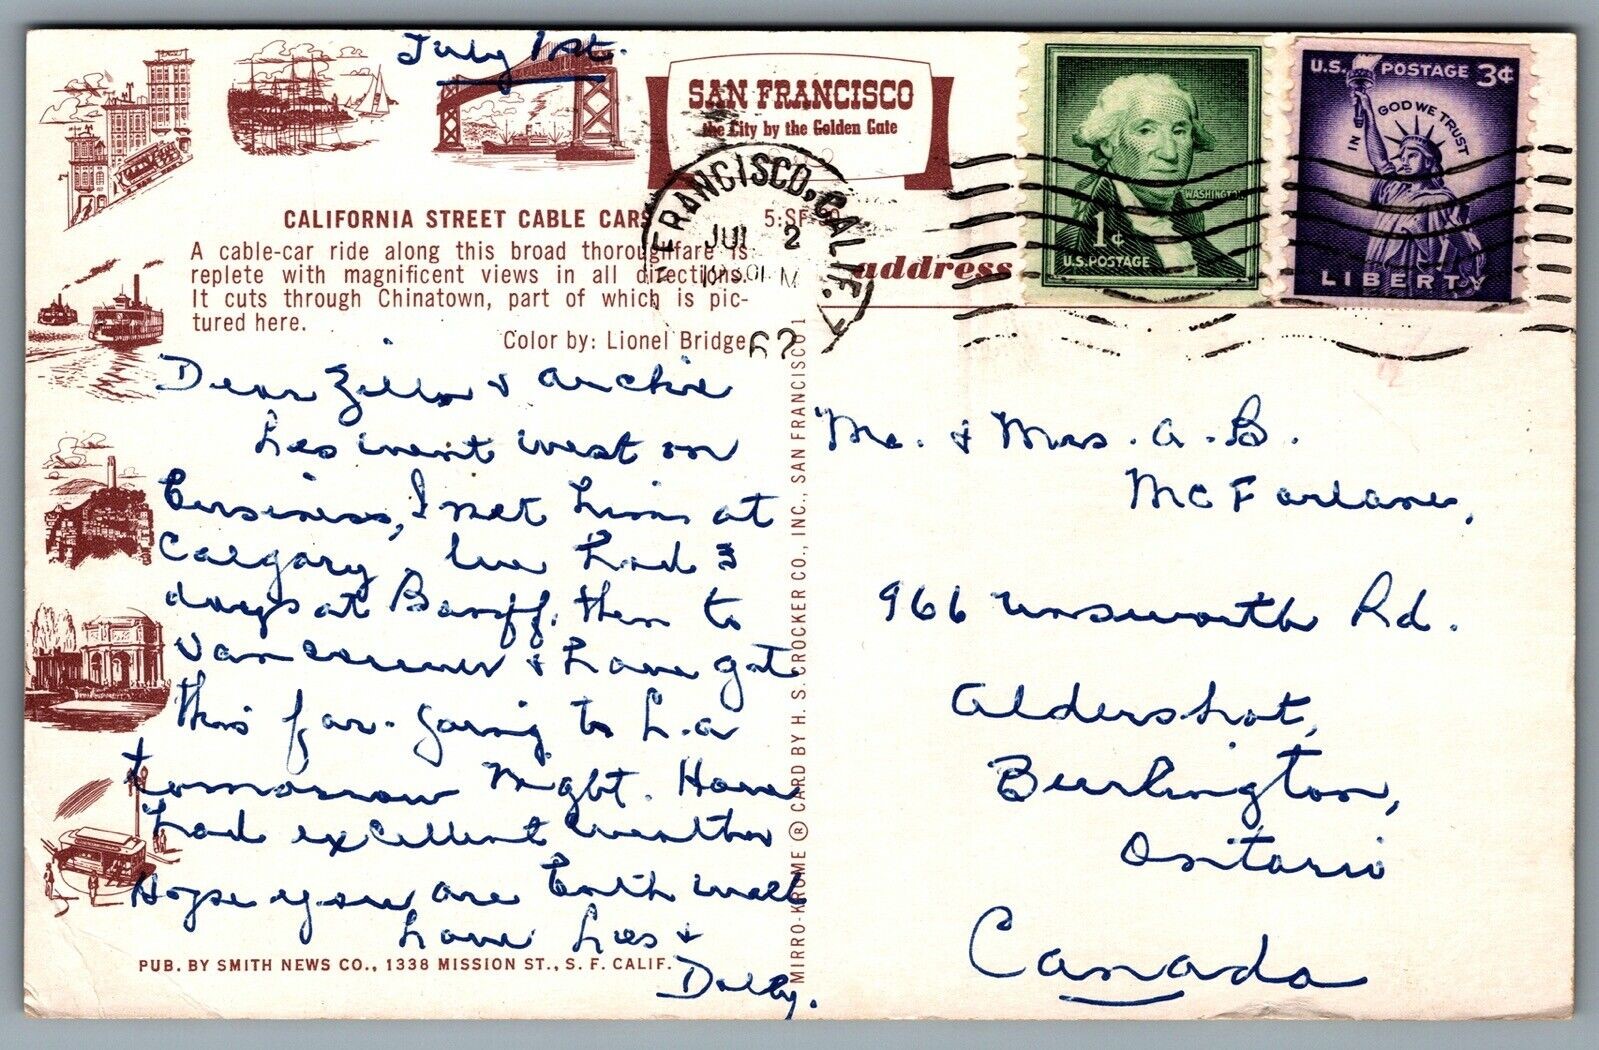 July 1st.
SAN FRANCISCO
the City by the Golden Gate
CALIFORNIA STREET CABLE CARS
A cable-car ride along this broad thoroughfare is
replete with magnificent views in all directions.
It cuts through Chinatown, part of which is pic-
tured here.
Color by: Lionel Bridge
Dear Zilla & Archie
Les went west on
business, I met him at
Calgary. We had 3
days at Banff, then to
Vancouver & have got
this far - going to L.A
tomorrow night. Have
had excellent weather
Hope you are both well
Love Les &
Dolly.
PUB. BY SMITH NEWS CO., 1338 MISSION ST., S. F. CALIF.
MIRRO-KROME ® CARD BY H. S. CROCKER CO., INC., SAN FRANCISCO 1
FRANCISCO, CALIF.
JUL 2
62
address
1¢
WASHINGTON
U.S. POSTAGE
U.S. POSTAGE 3¢
IN GOD WE TRUST
LIBERTY
Mr. & Mrs. A. B.
McFarlane,
966 Unsworth Rd.
Aldershot,
Burlington,
Ontario
Canada